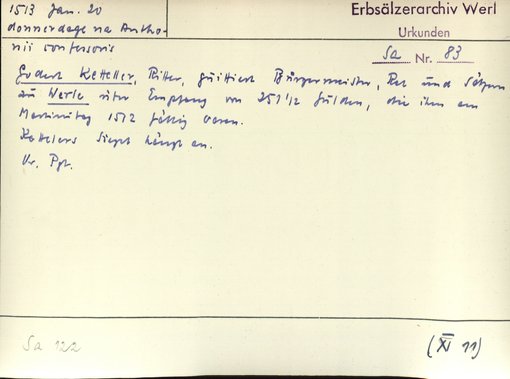 1513 Jan. 20
donnerdage na Antho-
nii confessoris
Erbsälzerarchiv Werl
Urkunden
Sa Nr. 83
Godert Ketteler, Ritter, quittiert Bürgermeister, Rat und Sälzern
zu Werle über Empfang von 251 1/2 Gulden, die ihm am
Martinitag 1512 fällig waren.
Kettelers Siegel hängt an.
Or. Pgt.
Sa 122
(XI 11)